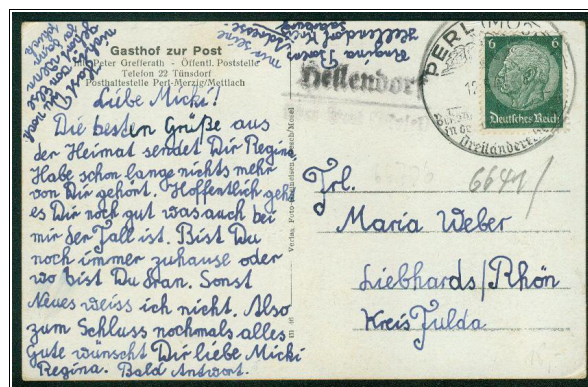 Gasthof zur Post
Inh. Peter Grefferath - Öffentl. Poststelle
Telefon 22 Tünsdorf
Posthaltestelle Perl-Merzig/Mettlach
Liebe Micki!
Die besten Grüße aus
der Heimat sendet Dir Regina.
Habe schon lange nichts mehr
von Dir gehört. Hoffentlich geht
es Dir noch gut was auch bei
mir der Fall ist. Bist Du
noch immer zuhause oder
wo bist Du dran. Sonst
Neues weiss ich nicht. Also
zum Schluss nochmals alles
Gute wünscht Dir liebe Micki
Regina. Bald Antwort.
mir seine
Adresse
Regina
Hellendorf Kreis
Saarburg
Hellendorf
PERL (MOSEL)
6 6
Deutsches Reich
6641/
Frl.
Maria Weber
Liebhards/Rhön
Kreis Fulda